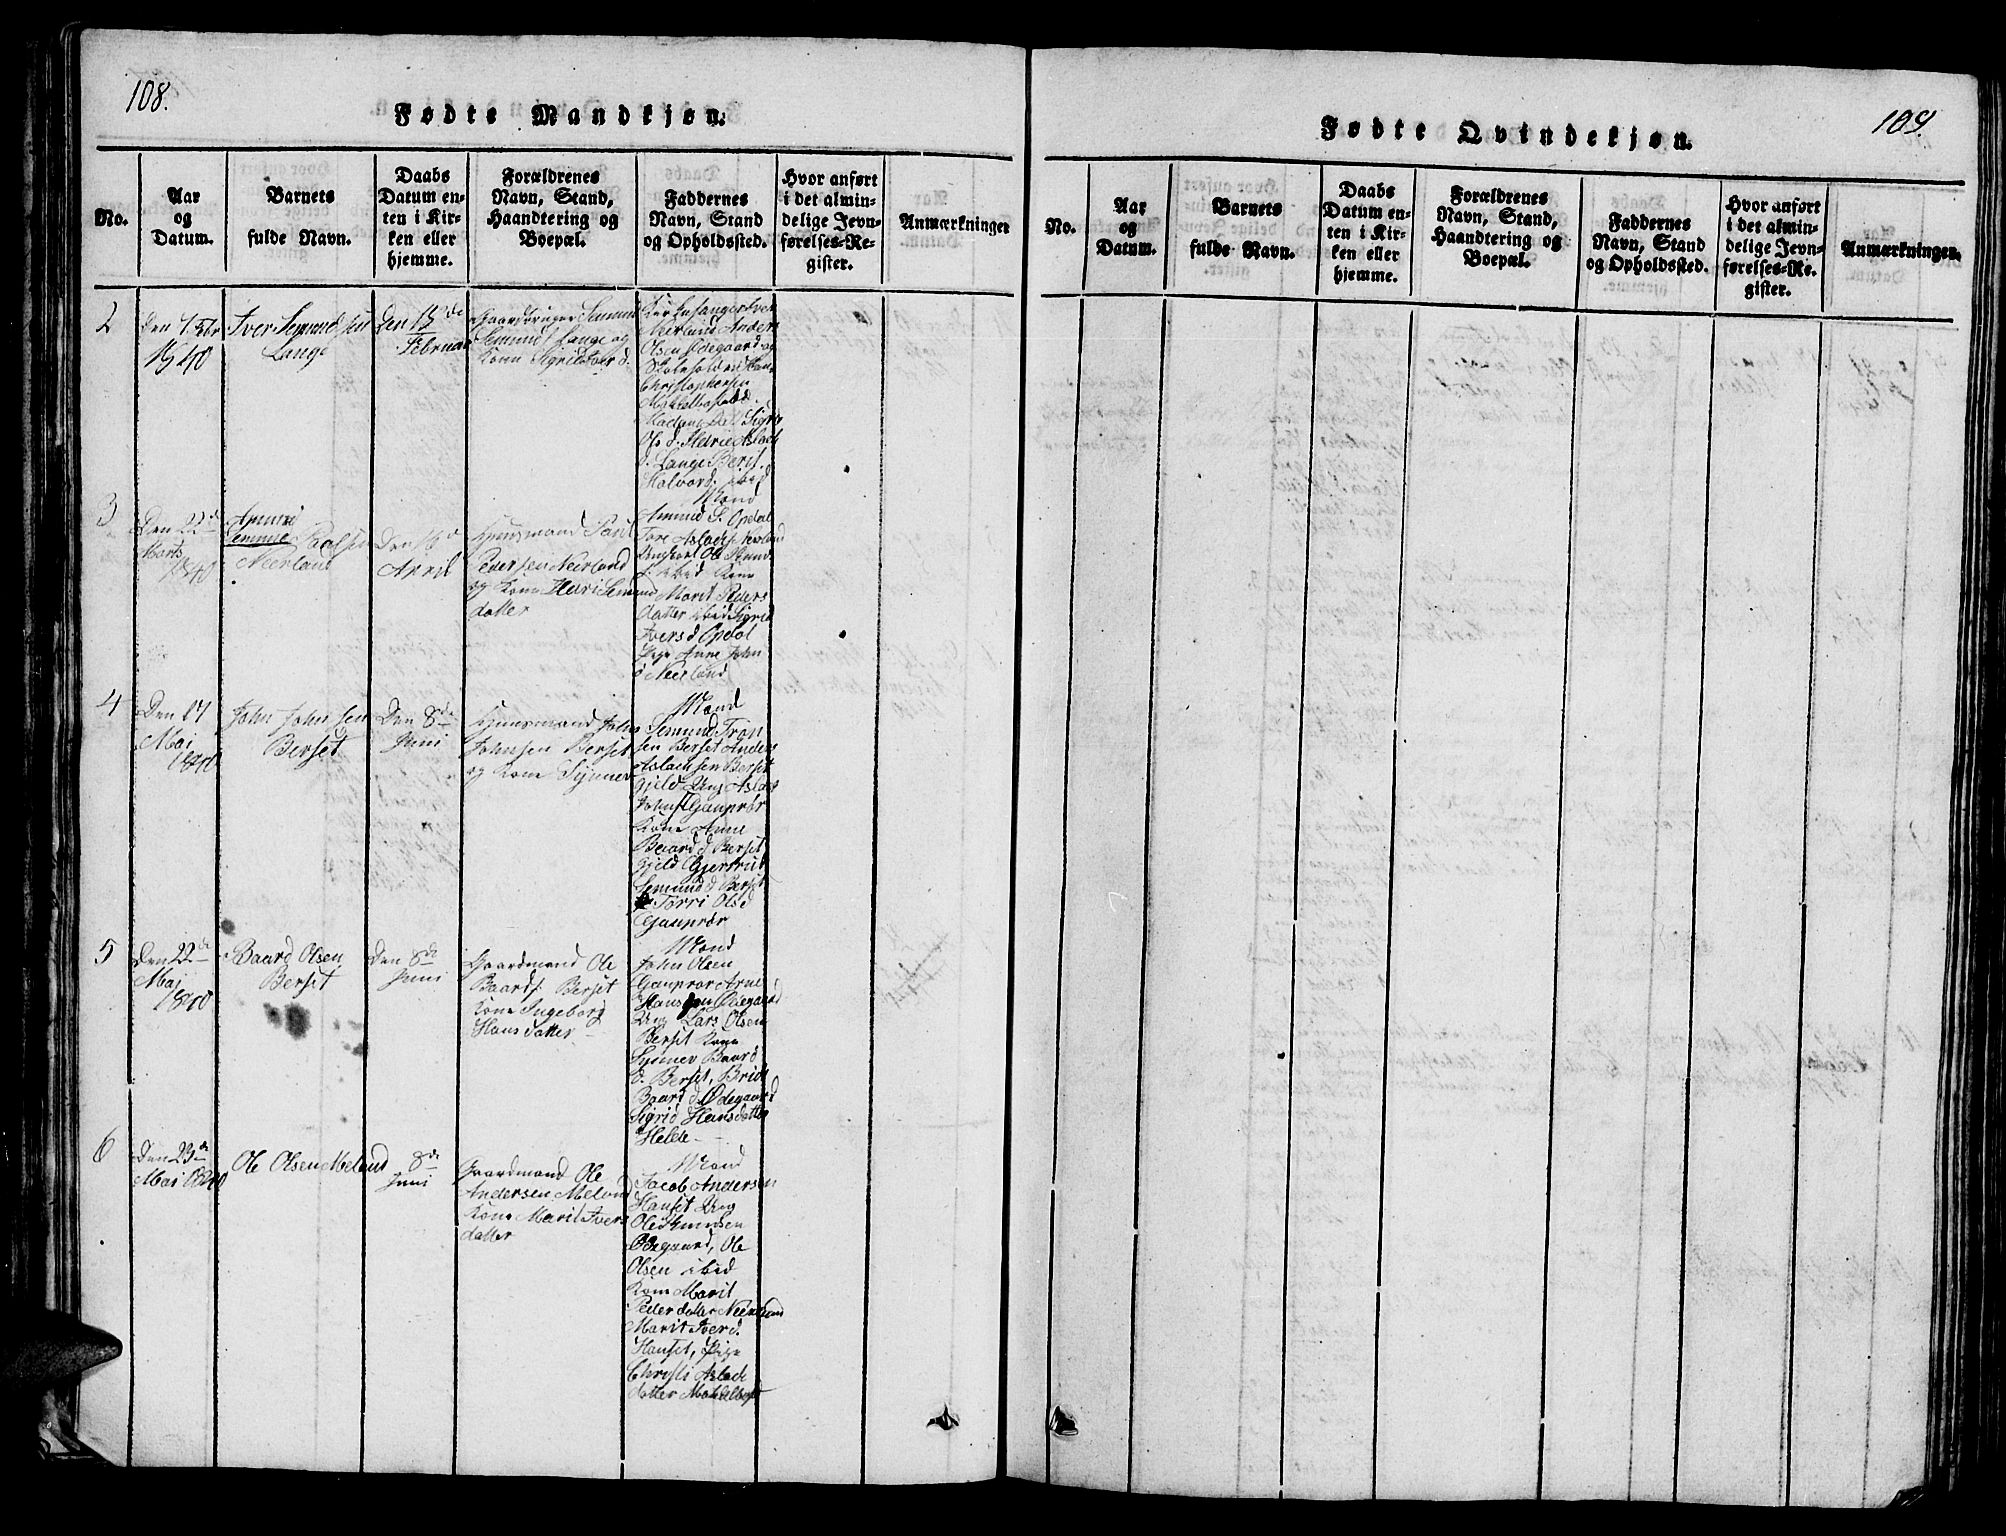 108.
Fødte Mandkjøn.
No.
Aar
og
Datum.
Barnets
fulde Navn.
Daabs
Datum en-
ten i Kir-
ken eller
hjemme.
Forældrenes
Navn, Stand,
Haandtering og
Boepæl.
Faddernes
Navn, Stand
og Opholdssted.
Hvor anført
i det almin-
delige Jevn-
førelses-Re-
gister.
Anmærkninger
2
Den
1840
Iver Semundsen
Lange
Den 13de
Februar
Semund
Semunds Lange og
Kone Sigrid
Kirkesanger Iver
Neerland Anders
Olsen Ødegaard og
Skoleholder Hans
Christophersen
Sigri
Ols d.
d. Lange Berit
Halvord. ibid
3
Den 22d
Marts
1840
Paalsen
Neerland
Den
April
Huusmand Paul
Pedersen Neerland
og Kone Semund
datter
Mænd
Amund S. Opdal
Tore Aslachs Neerland
Ungkarl Ole
s. ibid Kone
Marit Peders
datter ibid Sigrid
Ivers d Opdal
Pige Anne John
d Neerland
4
Den 17
Mai
1840
John Johnsen
Berset
Den 8de
Juni
Huusmand John
Johnsen Berset
og Kone Synnev
Mænd
Semund Tron
sen Berset Anders
Aslachsen Berset
gield Ung Aslac
Johns Gauprør
Kone Anne
Baard d. Berset
gield Gjertrud
Semund d Berset
Torri Ols d
Gauprør
5
Den 22de
Mai
1840
Baard Olsen
Berset
Den 8de
Juni
Gaardmand Ole
Baards. Berset
Kone Ingeborg
Hansdatter
Mænd
John Olsen
Gauprør Arne
Hanssen Ødegaard
Ung Lars Olsen
Berset Kone
Synnev Baard
d. Berset, Brith
Baard d Ødegaard
Sigrid Hansdatter
Helde
6
Den 23de
Mai 1840
Ole Olsen Meland
8de
Juni
Gaardmand Ole
Andersen Meland
Kone Marit Ivers
datter
Mænd
Jacob Andersen
Hanset Ung
Ole
Ole
Olsen ibid
Kone Marit
Peder datter Neerland
Marit Iver d.
Hanset, Pige
Christi Aslach
datter
109.
Fødte Qvindekjøn.
No.
Aar
og
Datum.
Barnets
fulde Navn.
Daabs
Datum en-
ten i Kir-
ken eller
hjemme.
Forældrenes
Navn, Stand,
Haandtering og
Boepæl.
Faddernes
Navn, Stand
og Opholdssted.
Hvor anført
i det almin-
delige Jevn-
førelses-Re-
gister.
Anmærkninger.